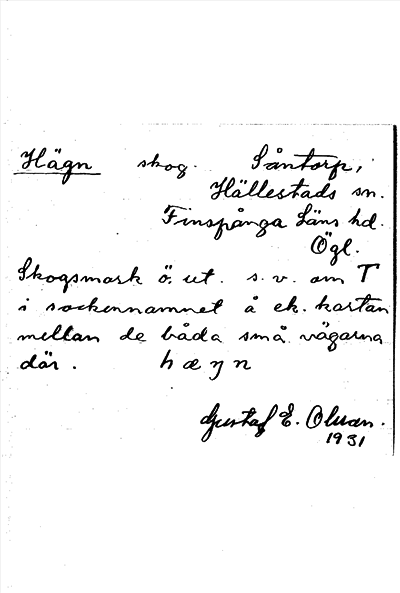 Hägn skog. Såntorp,
Hällestads sn.
Finspånga Läns hd.
Ögl.
Skogsmark ö. ut. s.v. om T
i sockennamnet å ek. kartan
mellan de båda små vägarna
där. hæŋn
Gustaf E. Olsson.
1931